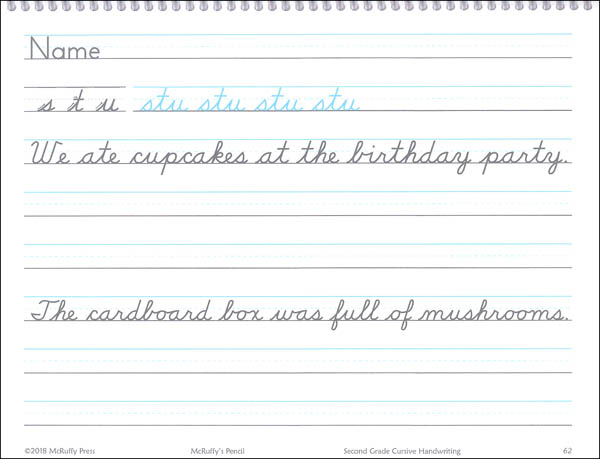 Name
s t u stu stu stu stu
We ate cupcakes at the birthday party.
The cardboard box was full of mushrooms.
©2018 McRuffy Press McRuffy's Pencil Second Grade Cursive Handwriting 62